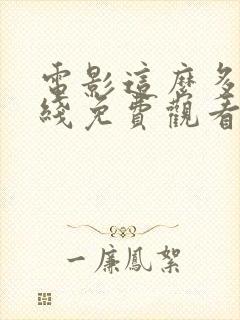 電影這麼多
綫免費觀看
一廉鳳絮